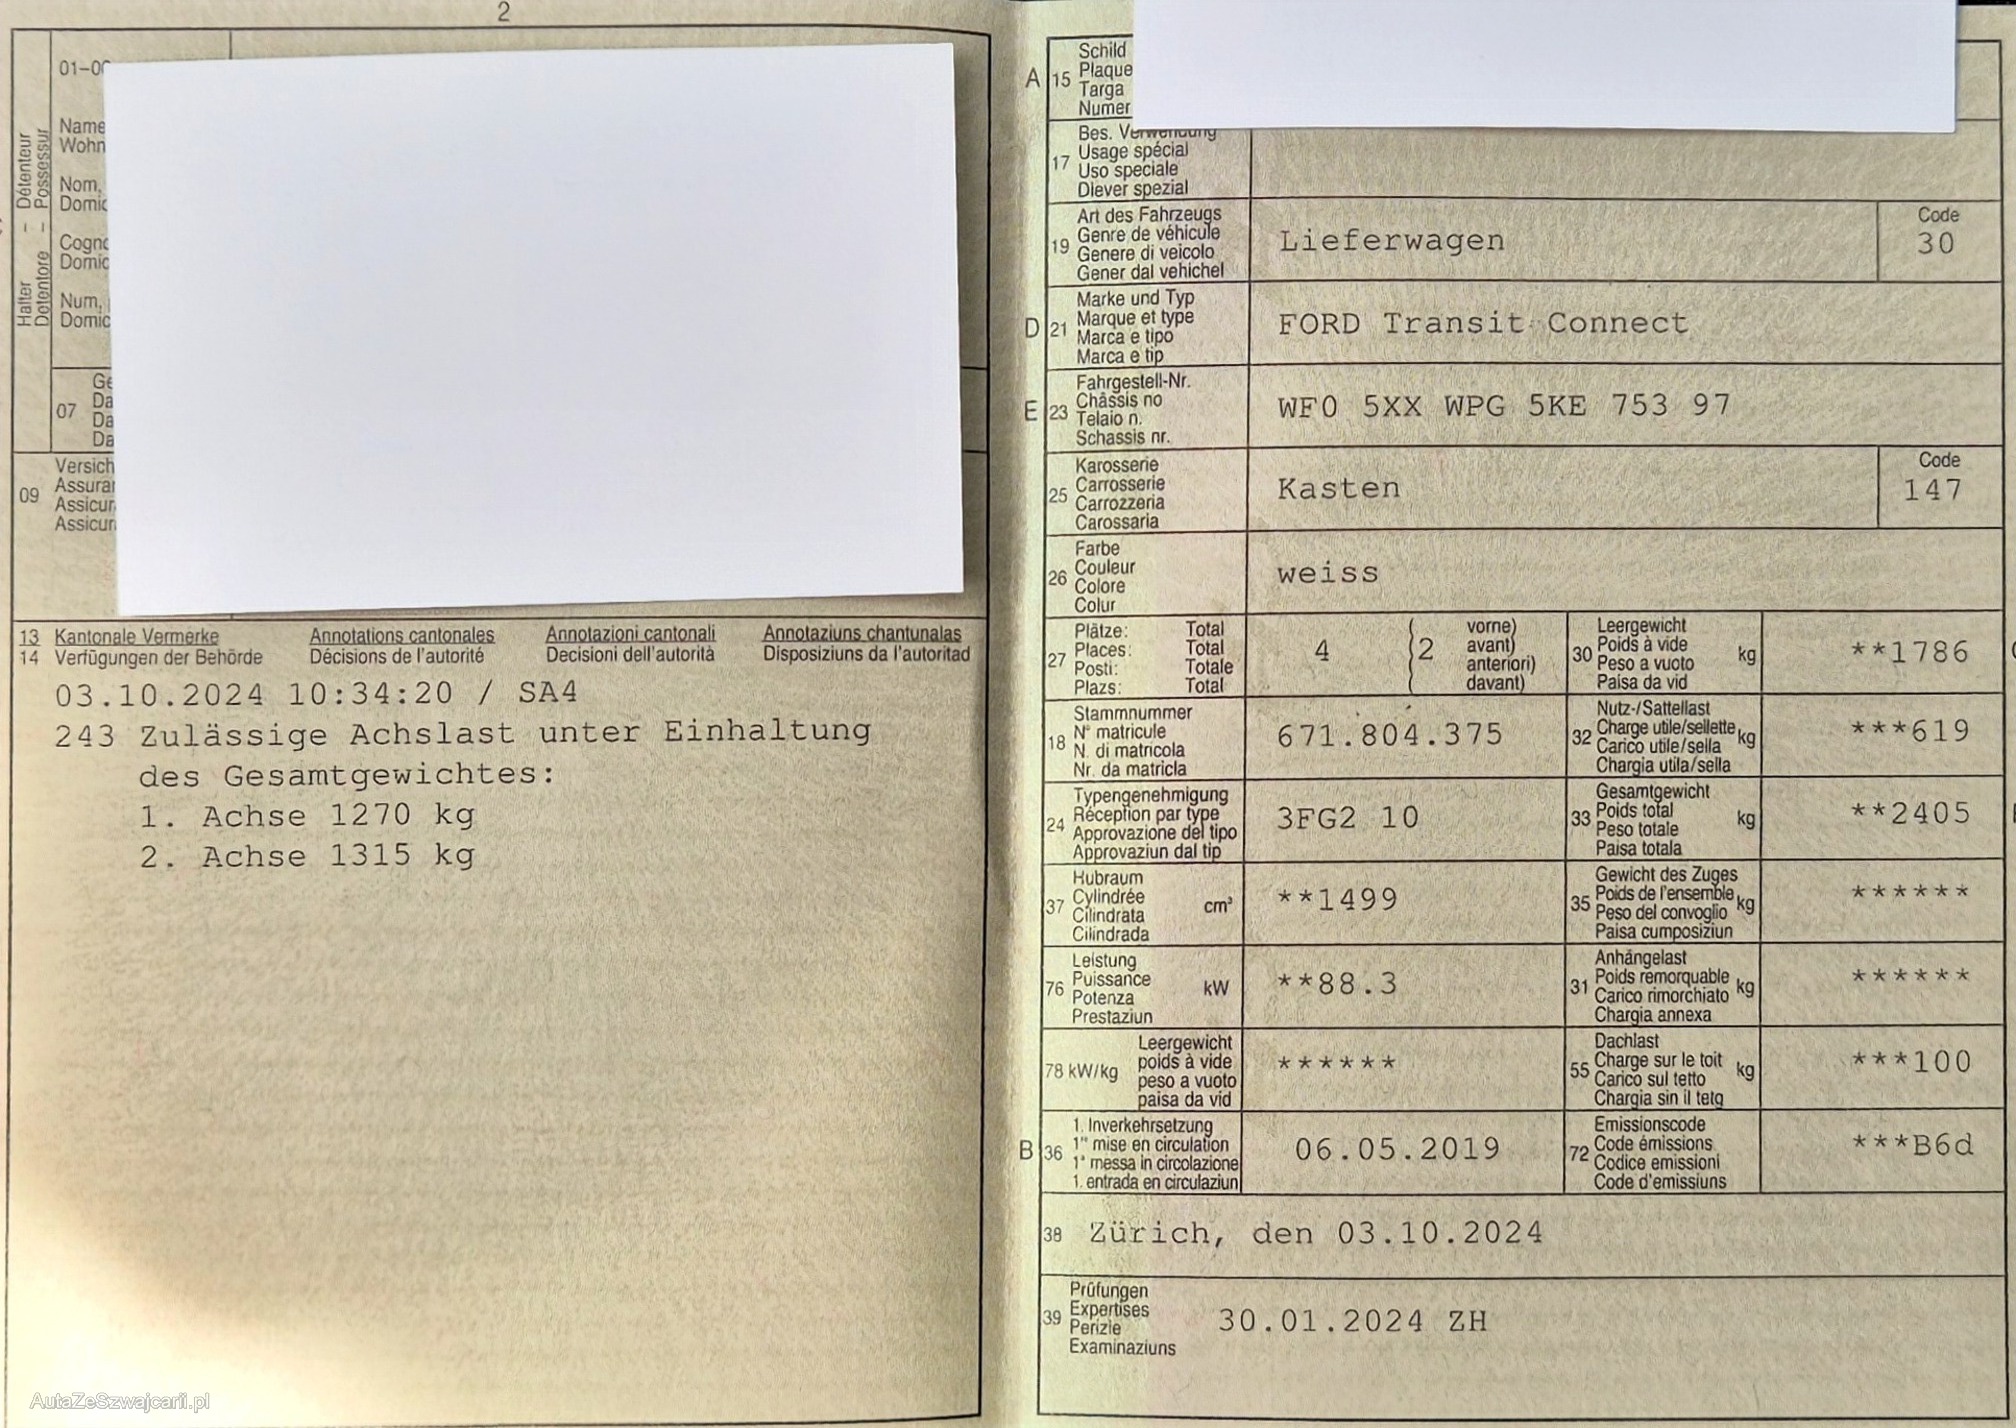 2
01–0
Halter – Détenteur
Detentore – Possessur
Name
Wohn
Nom,
Domic
Cogno
Domic
Num,
Domic
07
Ge
Da
Da
Da
09
Versich
Assura
Assicur
Assicur
13 Kantonale Vermerke Annotations cantonales Annotazioni cantonali Annotaziuns chantunalas
14 Verfügungen der Behörde Décisions de l'autorité Decisioni dell'autorità Disposiziuns da l'autoritad
03.10.2024 10:34:20 / SA4
243 Zulässige Achslast unter Einhaltung
des Gesamtgewichtes:
1. Achse 1270 kg
2. Achse 1315 kg
AutaZeSzwajcarii.pl
A 15
Schild
Plaque
Targa
Numer
17
Bes. Verwendung
Usage spécial
Uso speciale
Diever spezial
19
Art des Fahrzeugs
Genre de véhicule
Genere di veicolo
Gener dal vehichel
Lieferwagen
Code
30
D 21
Marke und Typ
Marque et type
Marca e tipo
Marca e tip
FORD Transit Connect
E 23
Fahrgestell-Nr.
Châssis no
Telaio n.
Schassis nr.
WF0 5XX WPG 5KE 753 97
25
Karosserie
Carrosserie
Carrozzeria
Carossaria
Kasten
Code
147
26
Farbe
Couleur
Colore
Colur
weiss
27
Plätze: Total
Places: Total
Posti: Totale
Plazs: Total
4 (2
vorne)
avant)
anteriori)
davant)
30
Leergewicht
Poids à vide
Peso a vuoto
Paisa da vid
kg
**1786
18
Stammnummer
N° matricule
N. di matricola
Nr. da matricla
671.804.375
32
Nutz-/Sattellast
Charge utile/sellette
Carico utile/sella
Chargia utila/sella
kg
***619
24
Typengenehmigung
Réception par type
Approvazione del tipo
Approvaziun dal tip
3FG2 10
33
Gesamtgewicht
Poids total
Peso totale
Paisa totala
kg
**2405
37
Hubraum
Cylindrée
Cilindrata
Cilindrada
cm³
**1499
35
Gewicht des Zuges
Poids de l'ensemble
Peso del convoglio
Paisa cumposiziun
kg
******
76
Leistung
Puissance
Potenza
Prestaziun
kW
**88.3
31
Anhängelast
Poids remorquable
Carico rimorchiato
Chargia annexa
kg
******
78 kW/kg
Leergewicht
poids à vide
peso a vuoto
paisa da vid
******
55
Dachlast
Charge sur le toit
Carico sul tetto
Chargia sin il tetg
kg
***100
B 36
1. Inverkehrsetzung
1re mise en circulation
1a messa in circolazione
1. entrada en circulaziun
06.05.2019
72
Emissionscode
Code émissions
Codice emissioni
Code d'emissiuns
***B6d
38 Zürich, den 03.10.2024
39
Prüfungen
Expertises
Perizie
Examinaziuns
30.01.2024 ZH